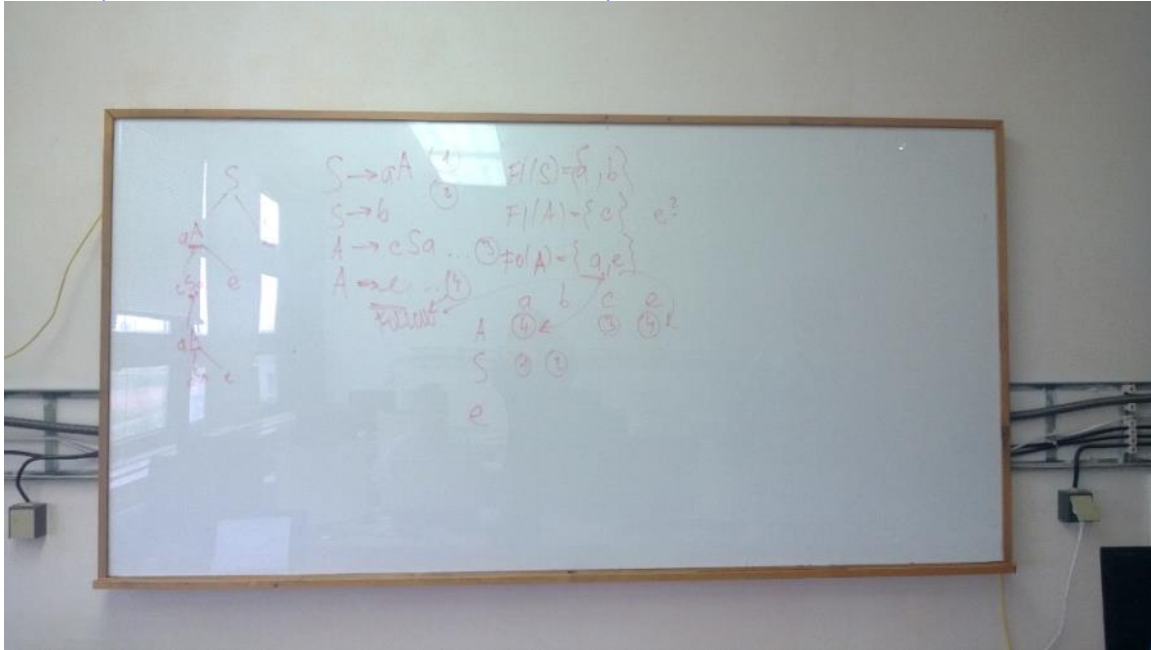 S
aA
e
e
S→aA (1)
S→b (2)
A→cSa ... (3)
A→e ... (4)
FI(S)={a,b}
FI(A)={c} e?
Fo(A)={a,e}
a b c e
A (4) (3) (4)
S (1) (2)
e